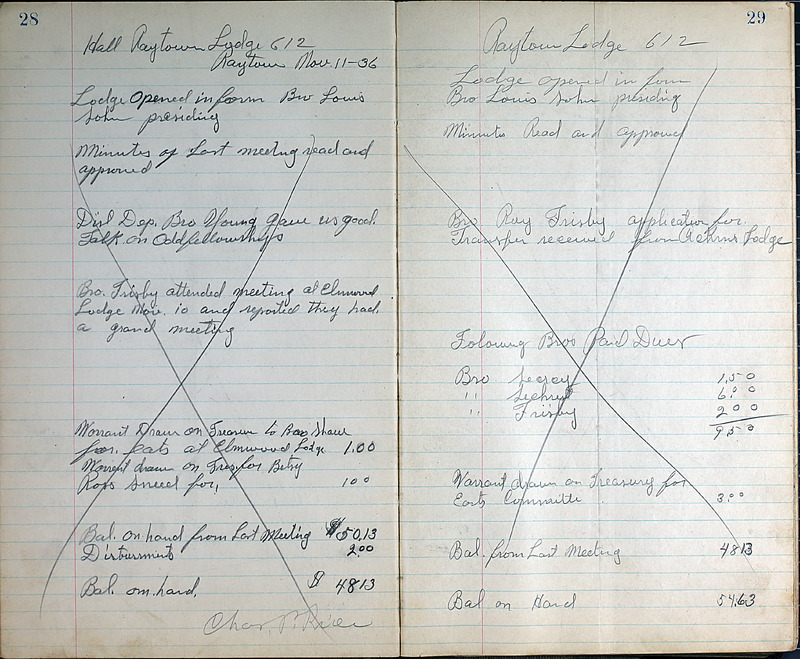 28
Hall Raytown Lodge 612
Raytown Nov. 11-36
Lodge Opened in form Bro Louis
John presiding
Minutes of Last meeting read and
approved
Dist Dep. Bro Young gave us good
Talk on Oddfellowships
Bro. Frisby attended meeting at Elmwood
Lodge Nov. 10 and reported they had
a grand meeting
Warrant Drawn on Treasurer to Bro
for Eats at Elmwood Lodge 1.00
Warrent drawn on Tres. for Betsy
Ross for, 100
Bal. on hand from Last Meeting $50.13
Disburments 2.00
Bal. on hand, $ 4813
Chas. P.
29
Raytown Lodge 612
Lodge opened in form
Bro Louis John presiding
Minutes Read and approved
Bro Ray Frisby application for
Transfer received from Lodge
Following Bros Paid Dues
Bro 1.50
" 6.00
" Frisby 200
9.50
Warrant drawn on Treasury for
Eats Committee 3.00
Bal. from Last Meeting 4813
Bal on Hand 54.63